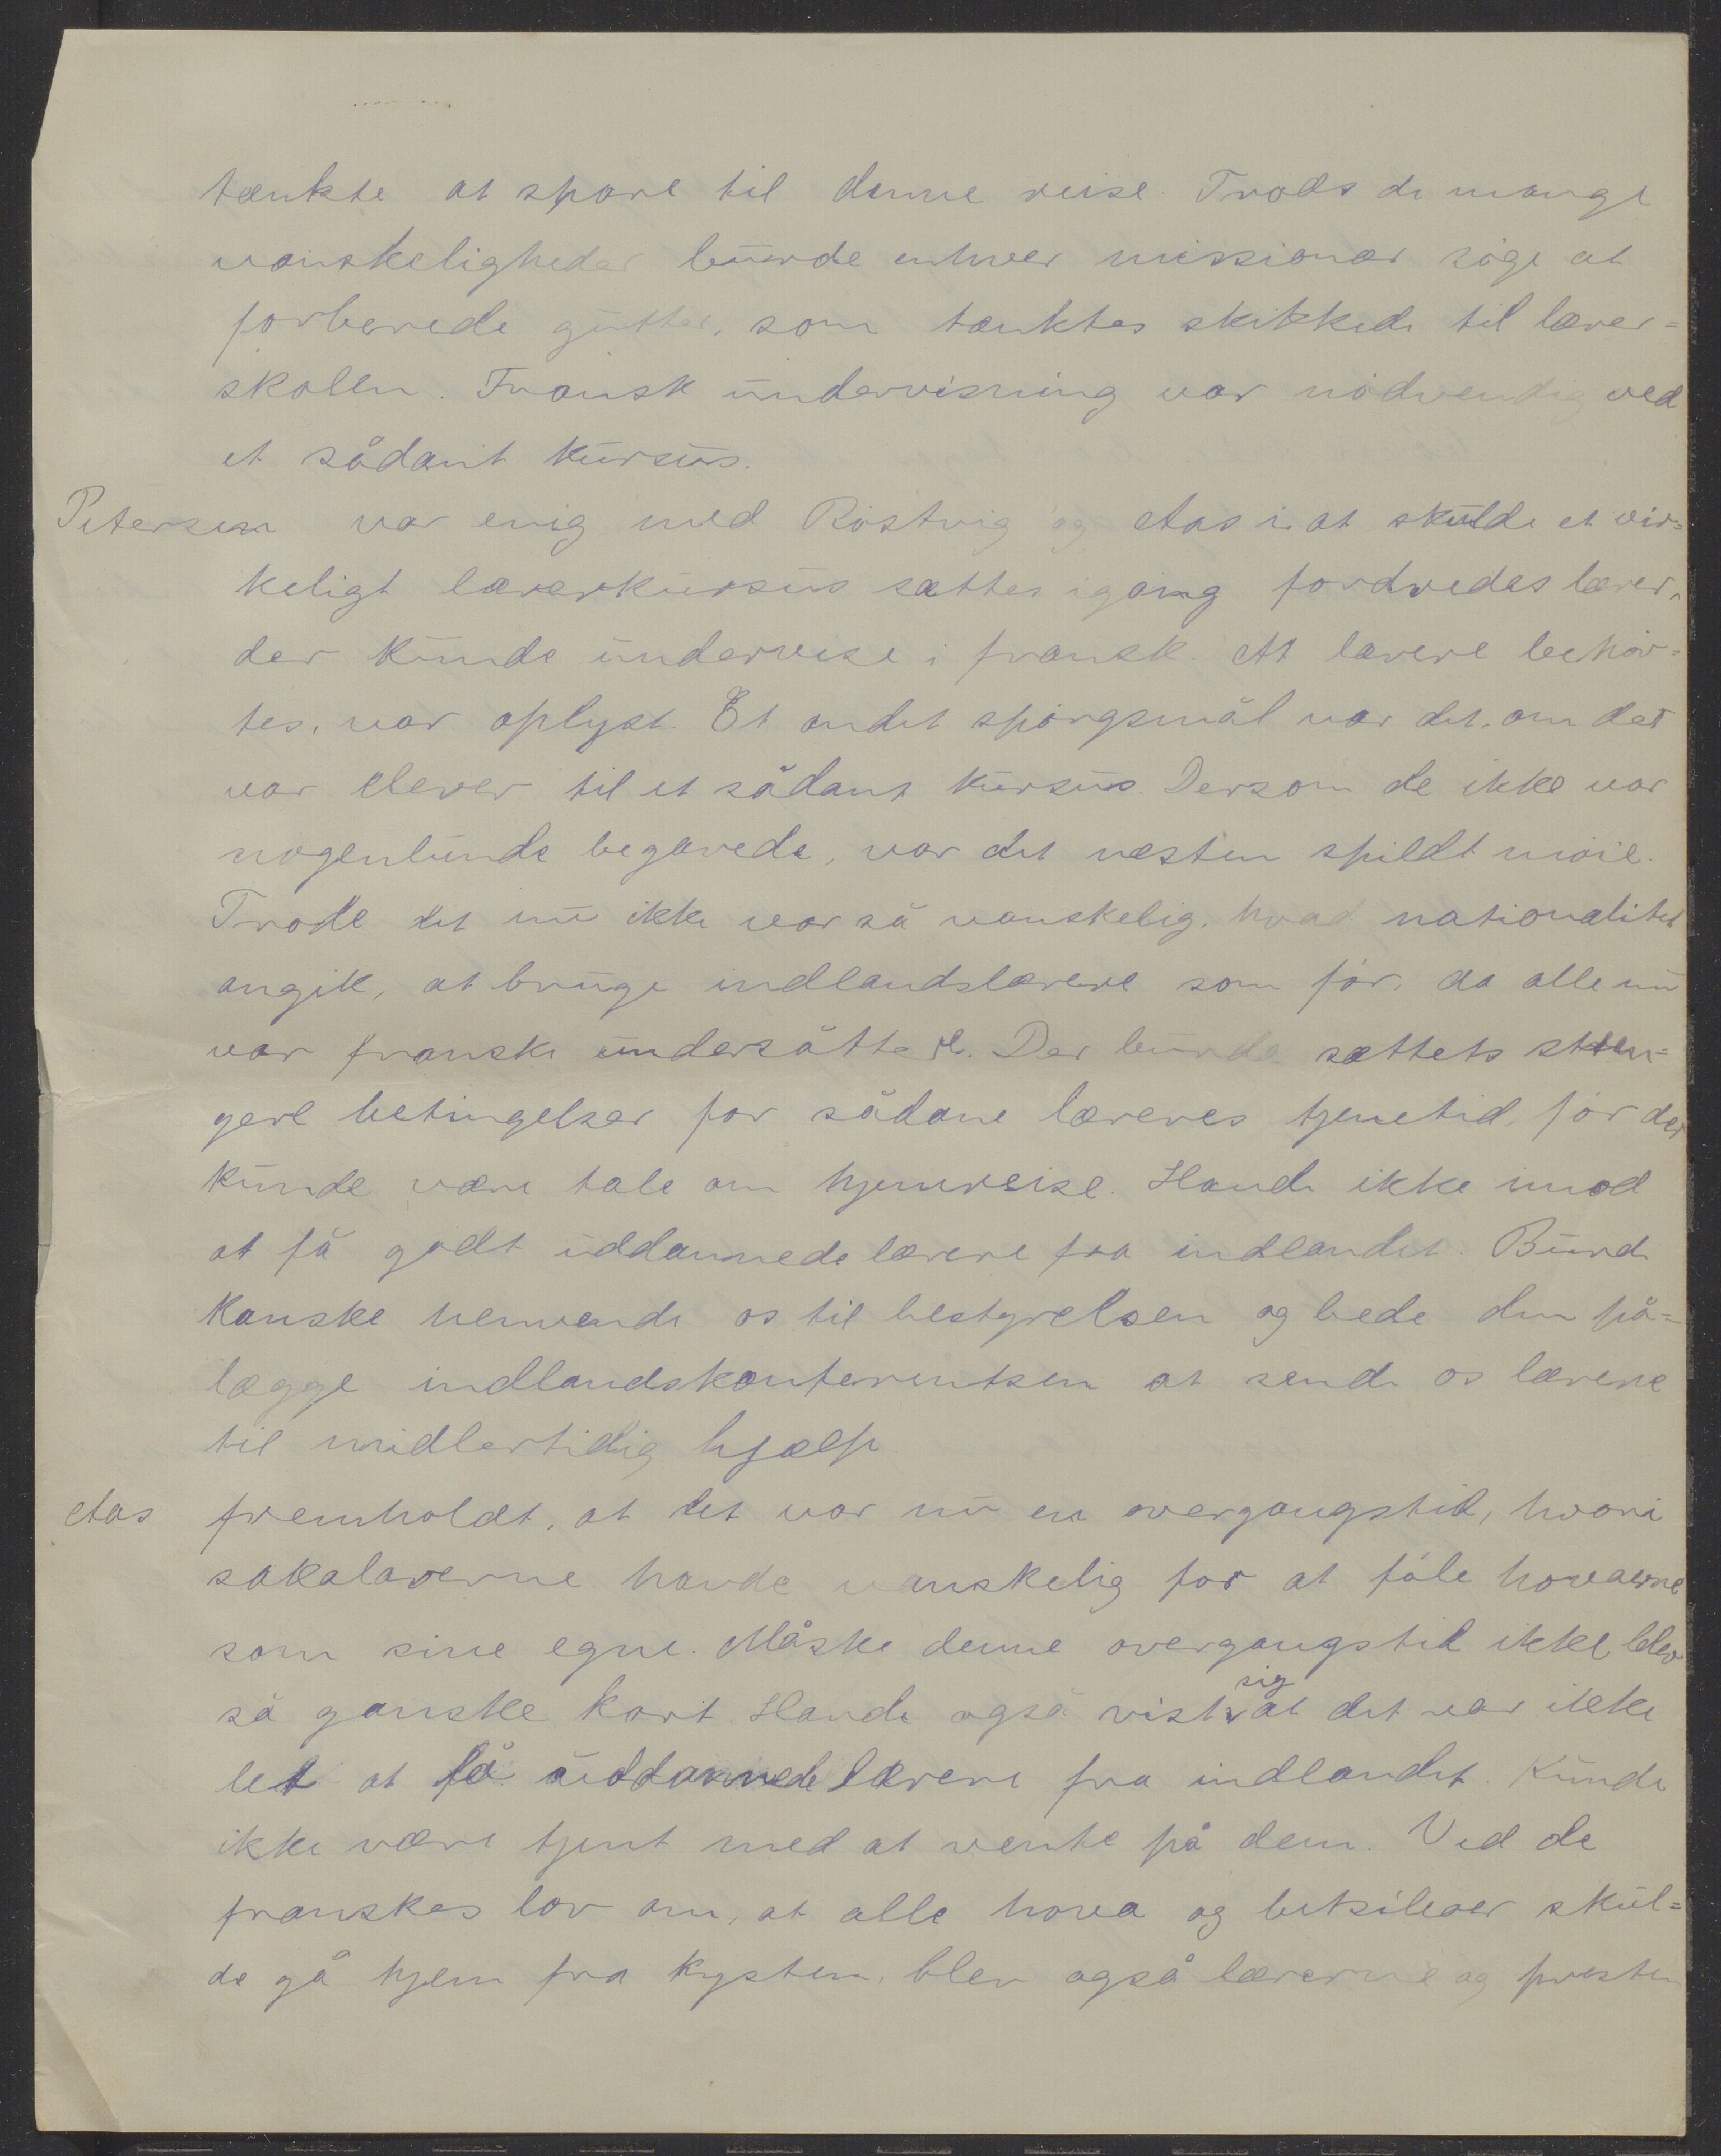 tænkte at spare til denne reise. Trods de mange
vanskeligheder burde enhver missionær söge at
forberede gutter, som tænktes skikkede til lærer=
skolen. Fransk undervisning var nödvendig ved
et sådant kursus.
Petersen var enig med Röstvig og Aas i at skulde et vir=
keligt lærerkursus sættes igang fordredes lærer,
der kunde undervise i fransk. At lærere behöv=
tes, var oplyst. Et andet spörgsmål var det, om det
var elever til et sådant kursus. Dersom de ikke var
nogenlunde begavede, var det næsten spildt möie.
Trode det nu ikke var så vanskelig, hvad nationalitet
angik, at bruge indlandslærere som för, da alle nu
var franske undersåtter. Der burde sættets stren=
gere betingelser for sådane læreres tjenetid, för der
kunde være tale om hjemreise. Havde ikke imod
at få godt uddannede lærere fra indlandet. Burde
kanske henvende os til bestyrelsen og bede den på=
lægge indlandskonferentsen at sende os lærere
til midlertidig hjælp.
Aas fremholdt, at det var nu en overgangstid, hvori
sakalaverne havde vanskelig for at föle hovaerne
som sine egne. Måske denne overgangstid ikke blev
så ganske kort. Havde også vist sig at det var ikke
let at få uddannede lærere fra indlandet. Kunde
ikke være tjent med at vente på dem. Ved de
franskes lov om, at alle hova og betsileoer skul=
de gå hjem fra kysten, blev også lærerne og presten